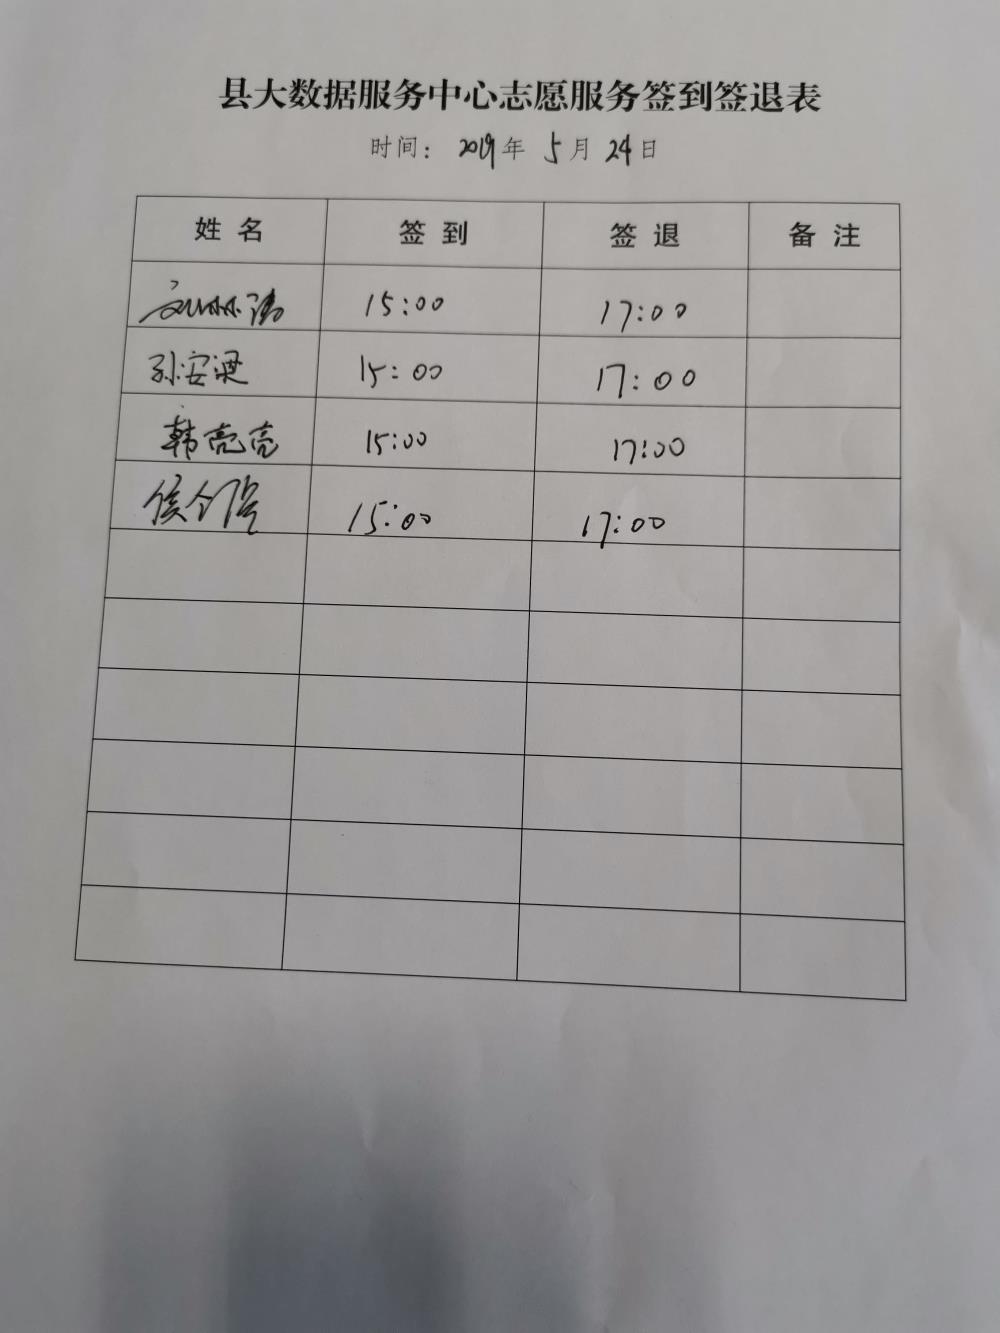 县大数据服务中心志愿服务签到签退表
时间： 2019年 5月 24日
姓 名 签 到 签 退 备 注
15:00 17:00
孙安梁 15:00 17:00
韩亮亮 15:00 17:00
侯 15:00 17:00